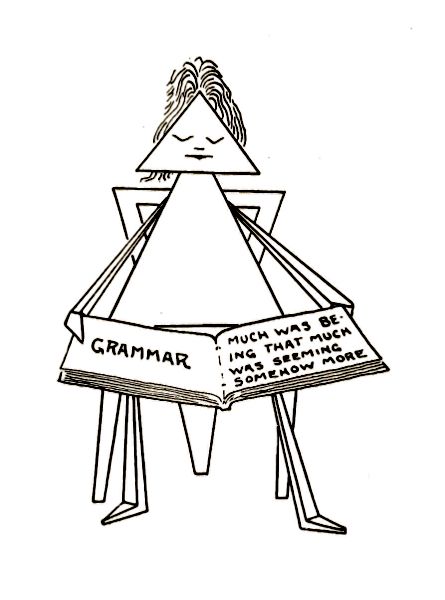 GRAMMAR
MUCH WAS BE-
ING THAT MUCH
WAS SEEMING
SOMEHOW MORE